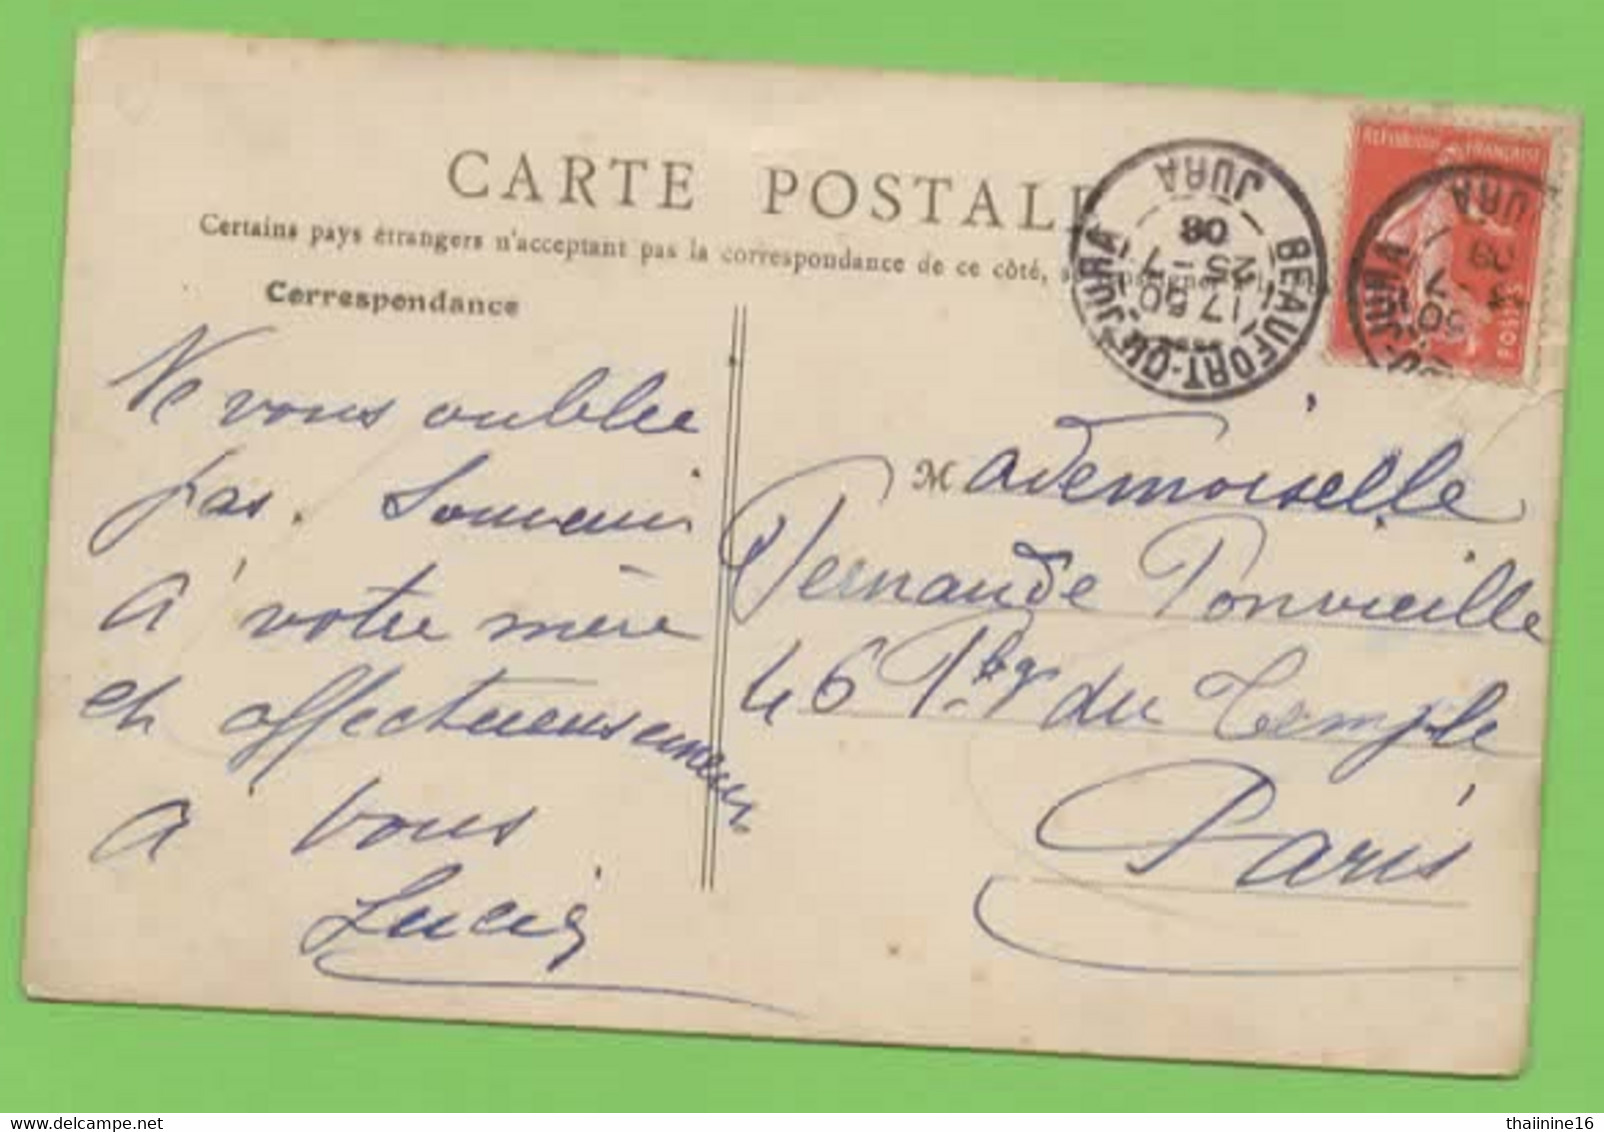 CARTE POSTALE
Certains pays étrangers n'acceptant pas la correspondance de ce côté,
Correspondance
BEAUFORT-DU-JURA
JURA
17 50
25 - 7
08
RÉPUBLIQUE FRANÇAISE
POSTES
Ne vous oublie
pas. Souvenir
à votre mère
et affectueusement
à vous
Lucie
Mademoiselle
Fernande Bonvieille
46 Fbg du Temple
Paris
thalinine16